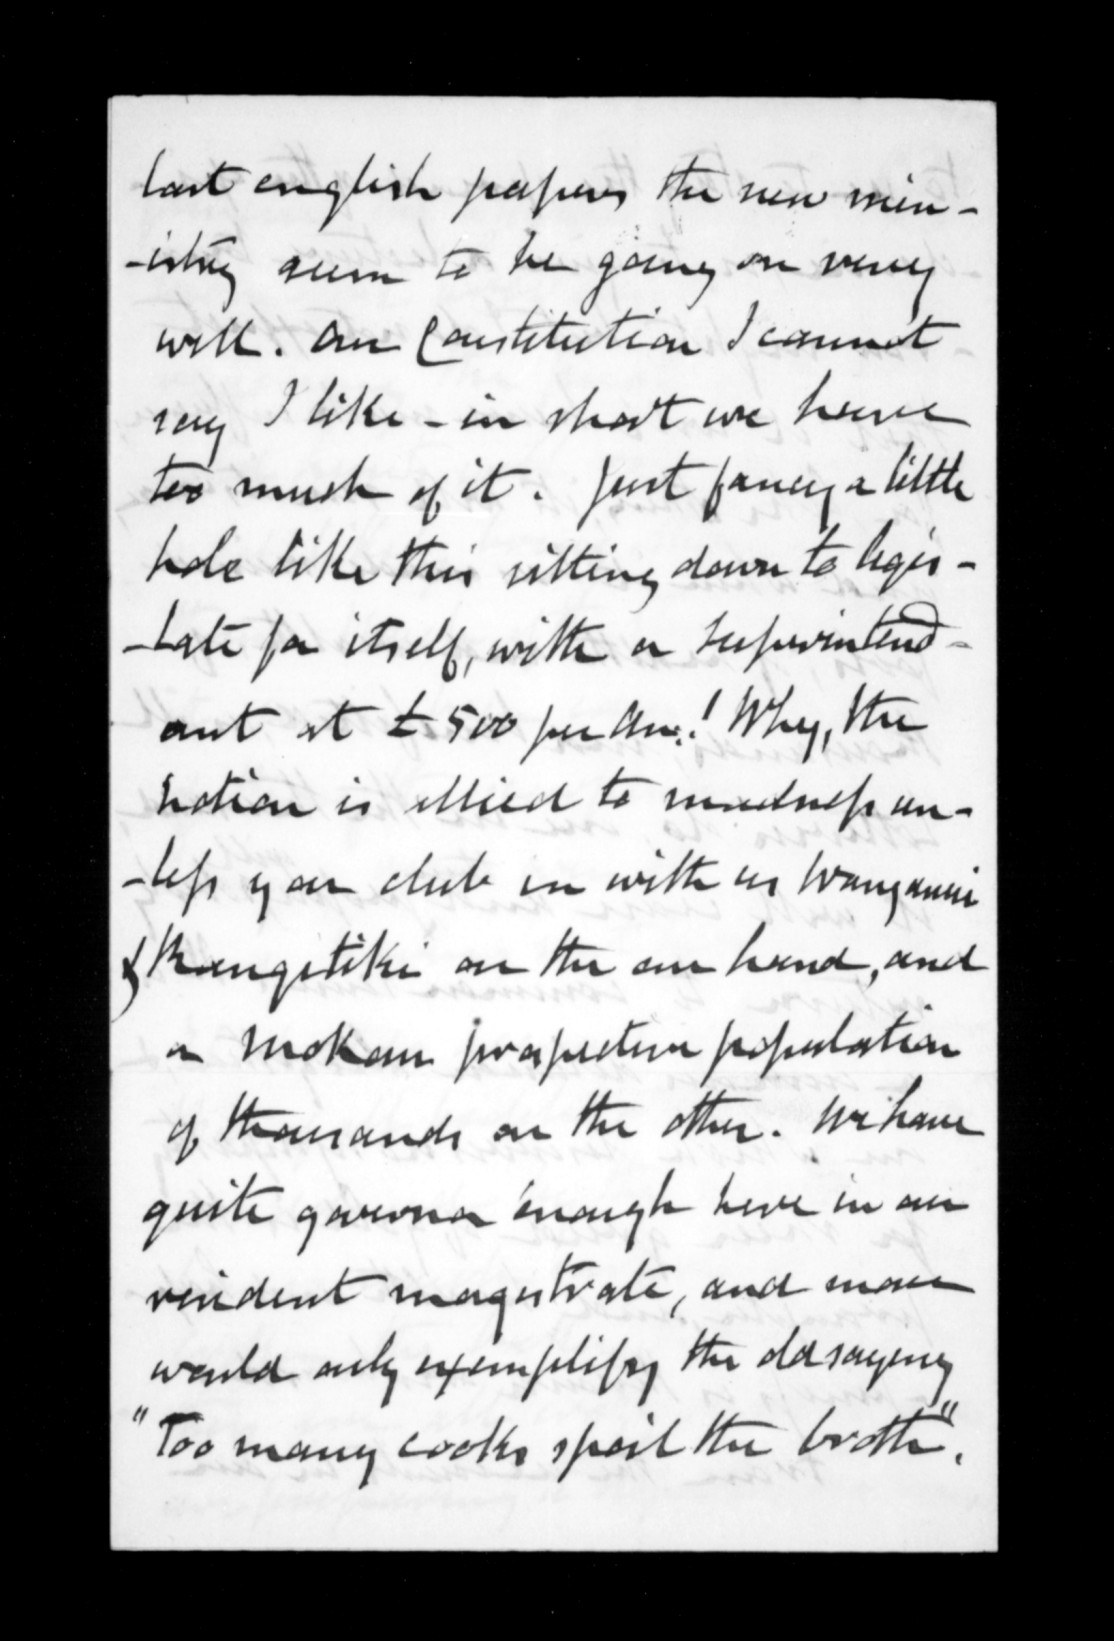 last english papers the new min-
-istry seem to be going on very
well. Our Constitution I cannot
say I like - in short we have
too much of it. Just fancy a little
hole like this sitting down to legis-
-late for itself, with a superintend-
ant at £500 per An.! Why, the
notion is allied to madness un-
-less you club in with us Wanganui
& Rangitiki on the one hand, and
a Mokau prospective population
of thousands on the other. We have
quite governor enough here in our
resident magistrate, and more
would only exemplify the old saying
"Too many cooks spoil the broth".